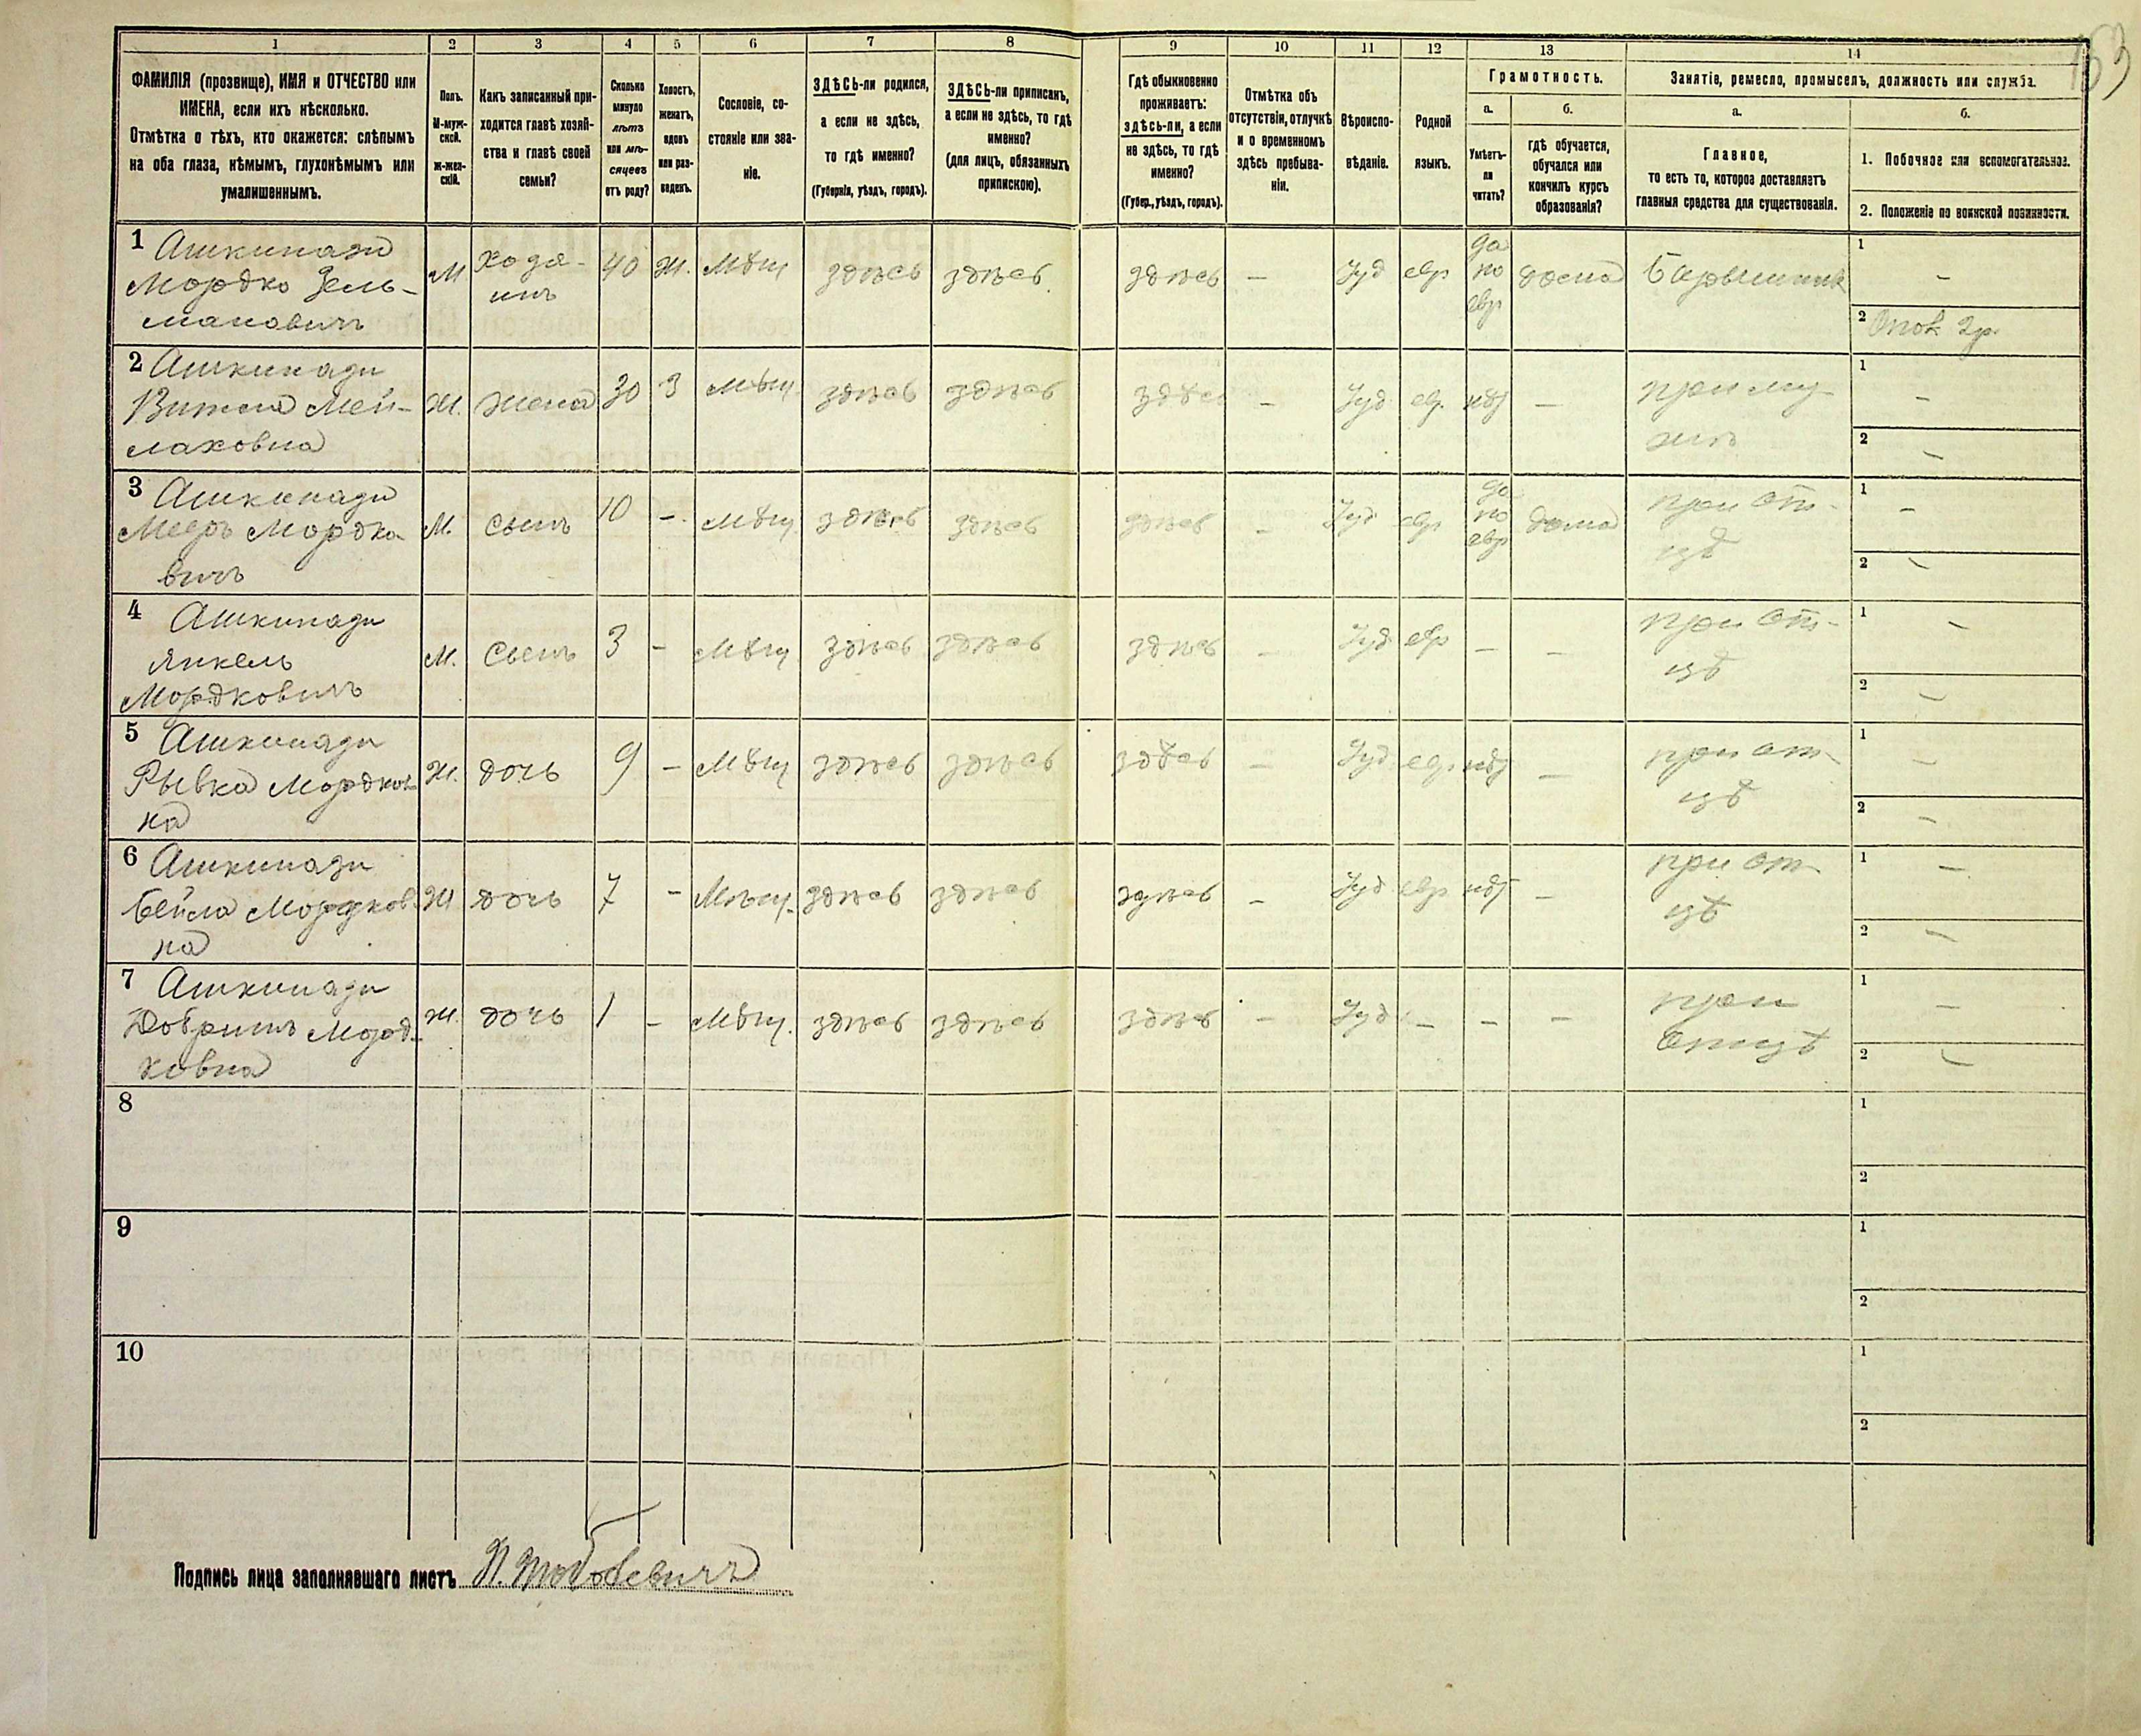 153
1 2 3 4 5 6 7 8 9 10 11 12 13 14
ФАМИЛІЯ (прозвище), ИМЯ и ОТЧЕСТВО или
ИМЕНА, если ихъ нѣсколько.
Отмѣтка о тѣхъ, кто окажется: слѣпымъ
на оба глаза, нѣмымъ, глухонѣмымъ или
умалишеннымъ.
Полъ.
М-муж-
ской.
Ж-жен-
скій.
Какъ записанный при-
ходится главѣ хозяй-
ства и главѣ своей
семьи?
Сколько
минуло
лѣтъ
или мѣ-
сяцевъ
отъ роду?
Холостъ,
женатъ,
вдовъ
или раз-
веденъ.
Сословіе, со-
стояніе или зва-
ніе.
ЗДѢСЬ-ли родился,
а если не здѣсь,
то гдѣ именно?
(Губернія, уѣздъ, городъ).
ЗДѢСЬ-ли приписанъ,
а если не здѣсь, то гдѣ
именно?
(для лицъ, обязанныхъ
припискою).
Гдѣ обыкновенно
проживаетъ:
здѣсь-ли, а если
не здѣсь, то гдѣ
именно?
(Губер., уѣздъ, городъ).
Отмѣтка объ
отсутствіи, отлучкѣ
и о временномъ
здѣсь пребыва-
ніи.
Вѣроиспо-
вѣданіе.
Родной
языкъ.
Грамотность.
а.
Умѣетъ-
ли
читать?
б.
гдѣ обучается,
обучался или
кончилъ курсъ
образованія?
Занятіе, ремесло, промыселъ, должность или служба.
а.
Главное,
то есть то, которое доставляетъ
главныя средства для существованія.
б.
1. Побочное или вспомогательное.
2. Положеніе по воинской повинности.
1 Ашкинази
Мордко Зель-
мановичъ
М.
Хозя-
инъ
40 Ж. Мѣщ здѣсь здѣсь здѣсь — Іуд евр
да
по
евр
дома Барышник
1 —
2 Опол 2р.
2 Ашкинази
Витля Мей-
лаховна
Ж. жена 30 З Мѣщ. здѣсь здѣсь здѣсь — Іуд евр. нѣт —
при му-
жѣ
1 —
2 —
3 Ашкинази
Мееръ Мордко-
вичъ
М. сынъ 10 — Мѣщ. здѣсь здѣсь здѣсь — Іуд евр
да
по
евр
дома
при от-
цѣ
1 —
2 —
4 Ашкинази
Янкель
Мордковичъ
М. Сынъ 3 — Мѣщ здѣсь здѣсь здѣсь — Іуд евр — —
при от-
цѣ
1 —
2 —
5 Ашкинази
Рывка Мордков-
на
Ж. дочь 9 — Мѣщ здѣсь здѣсь здѣсь — Іуд евр нѣт —
при от-
цѣ
1 —
2 —
6 Ашкинази
Бейла Мордков-
на
Ж дочь 7 — Мѣщ. здѣсь здѣсь здѣсь — Іуд евр нѣт —
при от-
цѣ
1 —
2 —
7 Ашкинази
Добришъ Морд-
ковна
Ж. дочь 1 — Мѣщ. здѣсь здѣсь здѣсь — Іуд — — —
при
отцѣ
1 —
2 —
8 1
2
9 1
2
10 1
2
Подпись лица заполнявшаго листъ